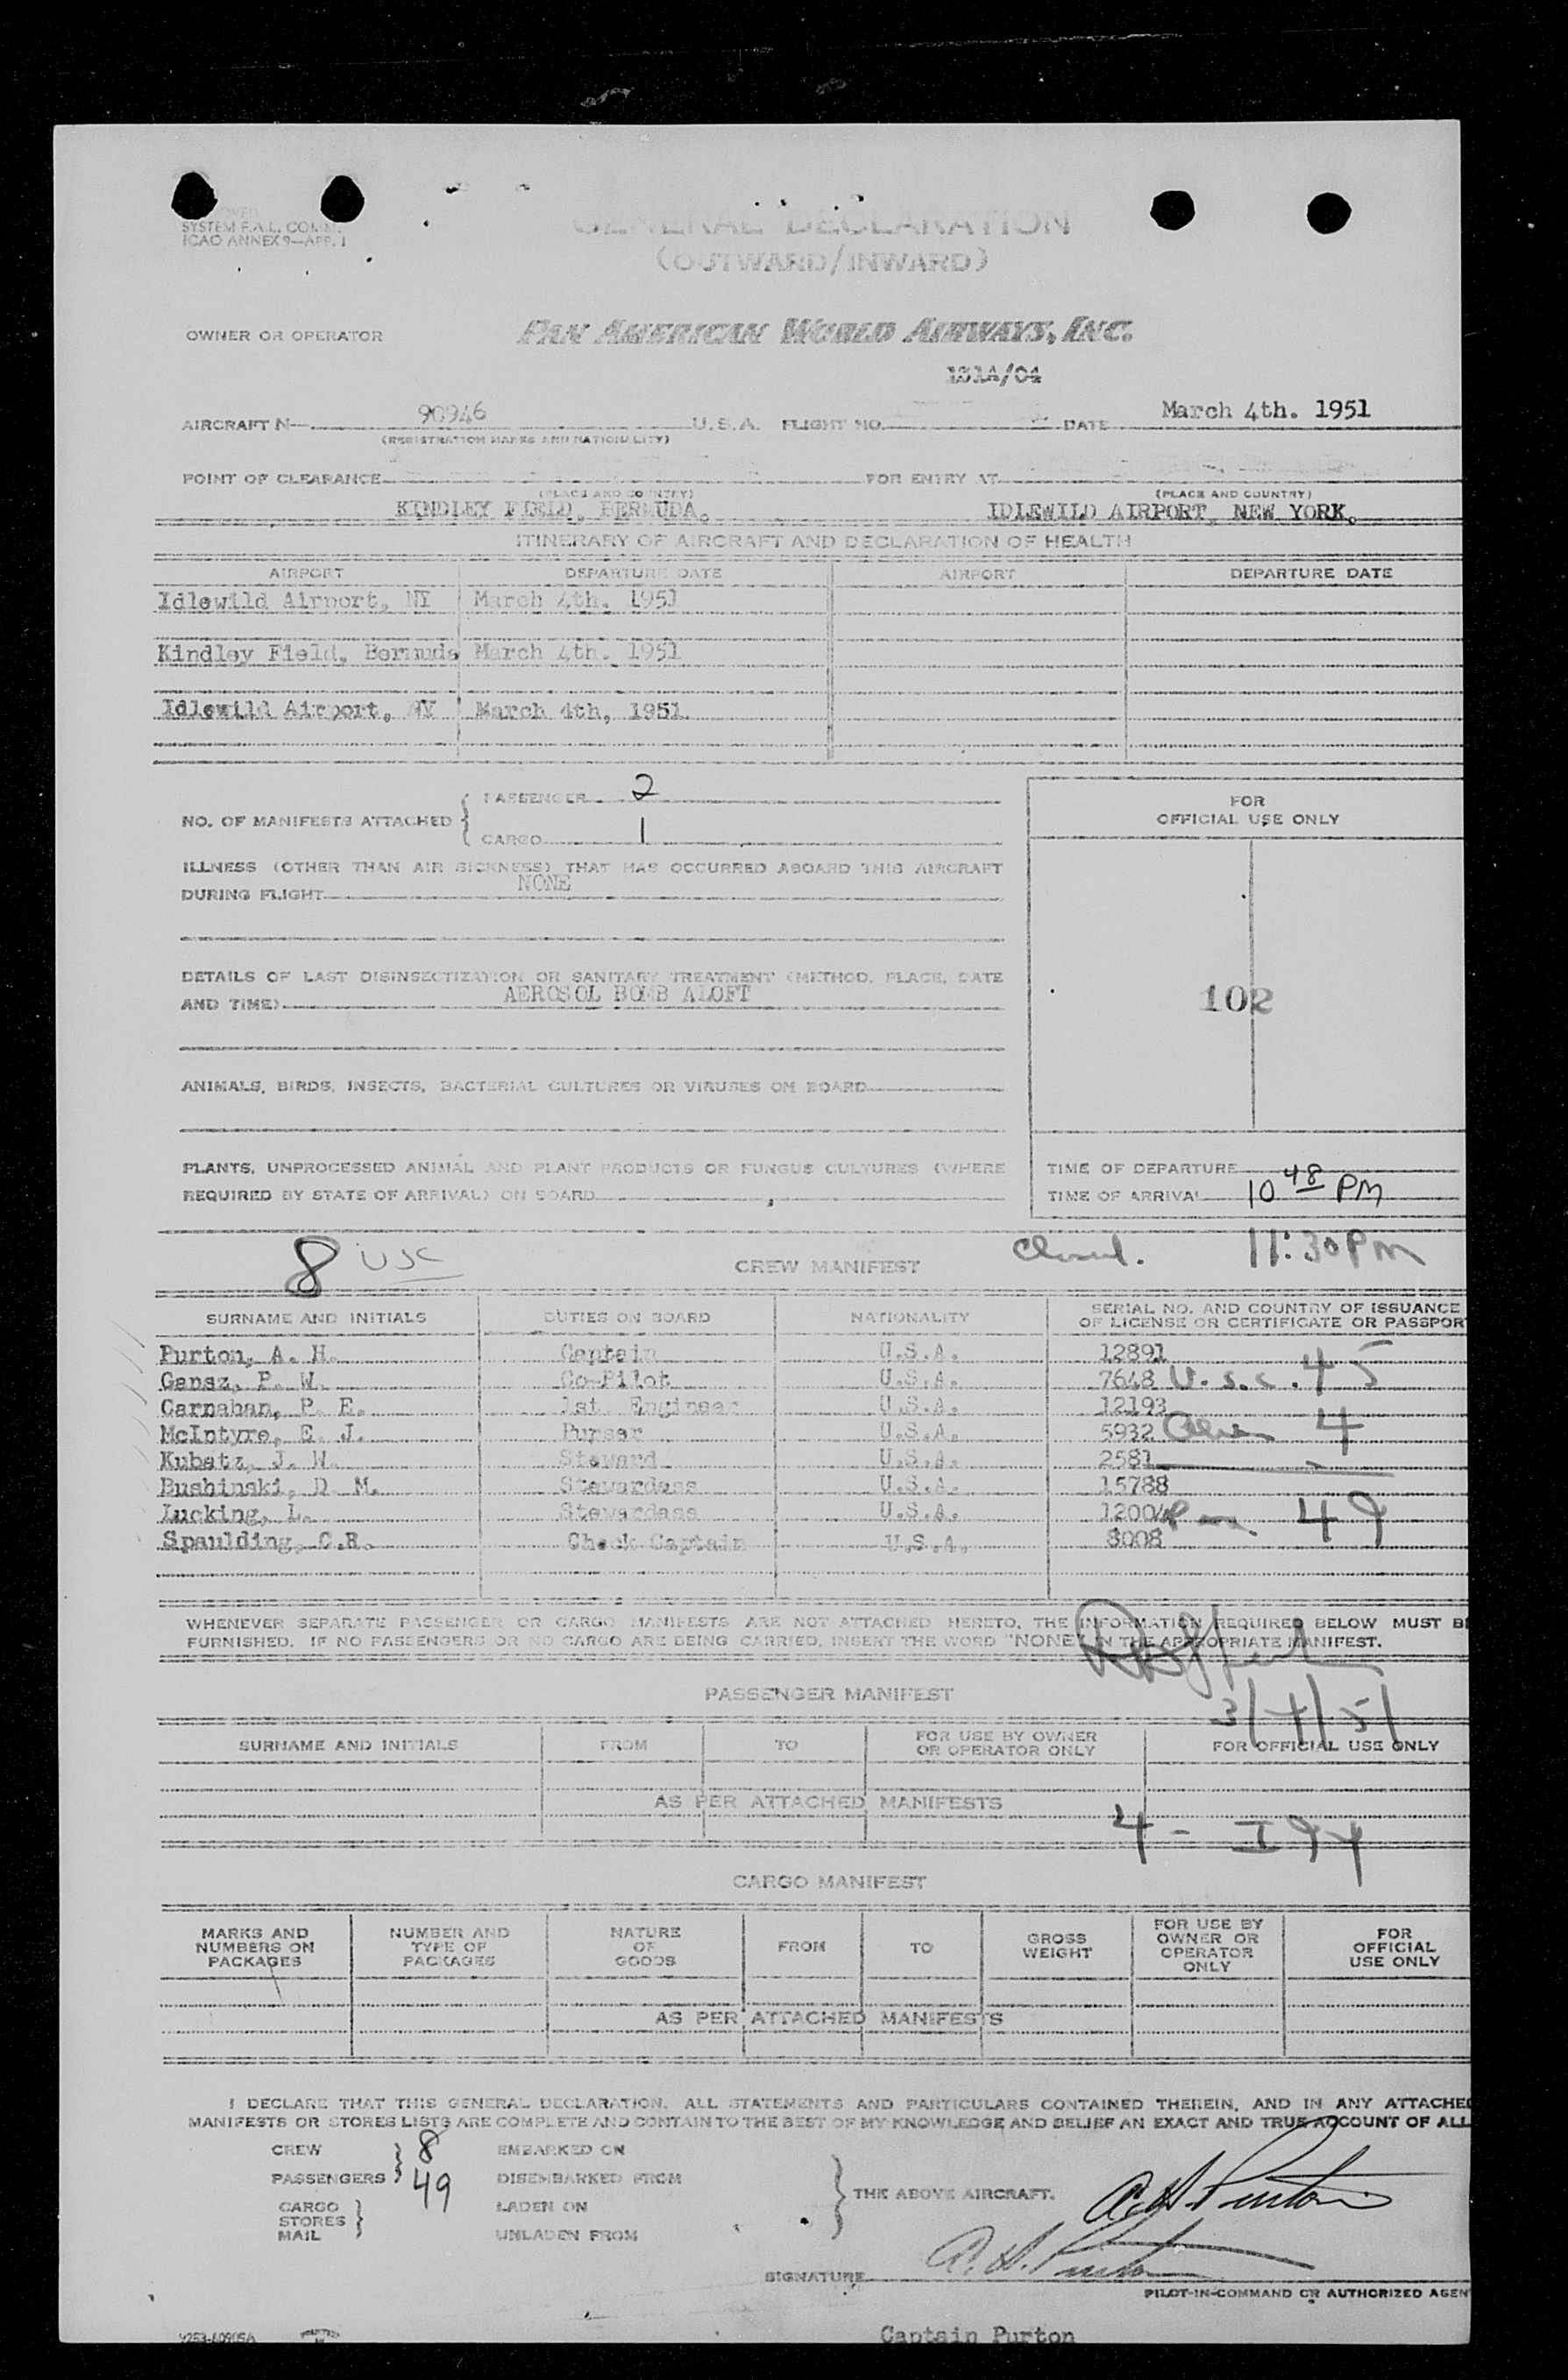 SYSTEM F.A.L. COMM.
ICAO ANNEX 9—APP. 1
GENERAL DECLARATION
(OUTWARD/INWARD)
OWNER OR OPERATOR PAN AMERICAN WORLD AIRWAYS, INC.
131A/04
AIRCRAFT N— 90946 U.S.A. FLIGHT NO. DATE March 4th. 1951
(REGISTRATION MARKS AND NATIONALITY)
POINT OF CLEARANCE FOR ENTRY AT
(PLACE AND COUNTRY) (PLACE AND COUNTRY)
KINDLEY FIELD, BERMUDA. IDLEWILD AIRPORT, NEW YORK.
ITINERARY OF AIRCRAFT AND DECLARATION OF HEALTH
AIRPORT DEPARTURE DATE AIRPORT DEPARTURE DATE
Idlewild Airport, NY March 4th. 1951
Kindley Field, Bermuda March 4th. 1951
Idlewild Airport, NY March 4th, 1951
NO. OF MANIFESTS ATTACHED { PASSENGER 2
CARGO 1
FOR
OFFICIAL USE ONLY
ILLNESS (OTHER THAN AIR SICKNESS) THAT HAS OCCURRED ABOARD THIS AIRCRAFT
DURING FLIGHT NONE
DETAILS OF LAST DISINSECTIZATION OR SANITARY TREATMENT (METHOD, PLACE, DATE
AND TIME) AEROSOL BOMB ALOFT
102
ANIMALS, BIRDS, INSECTS, BACTERIAL CULTURES OR VIRUSES ON BOARD
PLANTS, UNPROCESSED ANIMAL AND PLANT PRODUCTS OR FUNGUS CULTURES (WHERE
REQUIRED BY STATE OF ARRIVAL) ON BOARD
TIME OF DEPARTURE
TIME OF ARRIVAL 10 48 PM
8 USC CREW MANIFEST Closed. 11:30 PM
SURNAME AND INITIALS DUTIES ON BOARD NATIONALITY SERIAL NO. AND COUNTRY OF ISSUANCE
OF LICENSE OR CERTIFICATE OR PASSPOR
Purton, A. H. Captain U.S.A. 12891
Gansz, P. W. Co-Pilot U.S.A. 7648 U.S.C. 45
Carnahan, P. E. 1st. Engineer U.S.A. 12193
McIntyre, E. J. Purser U.S.A. 5932 Alien 4
Kubatz, J. W. Steward U.S.A. 2581
Bushinski, D. M. Stewardess U.S.A. 15788
Lucking, L. Stewardess U.S.A. 12004 49
Spaulding, C.R. Check Captain U.S.A. 8008
WHENEVER SEPARATE PASSENGER OR CARGO MANIFESTS ARE NOT ATTACHED HERETO, THE INFORMATION REQUIRED BELOW MUST BE
FURNISHED. IF NO PASSENGERS OR NO CARGO ARE BEING CARRIED, INSERT THE WORD "NONE" IN THE APPROPRIATE MANIFEST.
PASSENGER MANIFEST
3/4/51
SURNAME AND INITIALS FROM TO FOR USE BY OWNER
OR OPERATOR ONLY FOR OFFICIAL USE ONLY
AS PER ATTACHED MANIFESTS
4 - I 94
CARGO MANIFEST
MARKS AND
NUMBERS ON
PACKAGES NUMBER AND
TYPE OF
PACKAGES NATURE
OF
GOODS FROM TO GROSS
WEIGHT FOR USE BY
OWNER OR
OPERATOR
ONLY FOR
OFFICIAL
USE ONLY
AS PER ATTACHED MANIFESTS
I DECLARE THAT THIS GENERAL DECLARATION, ALL STATEMENTS AND PARTICULARS CONTAINED THEREIN, AND IN ANY ATTACHED
MANIFESTS OR STORES LISTS ARE COMPLETE AND CONTAIN TO THE BEST OF MY KNOWLEDGE AND BELIEF AN EXACT AND TRUE ACCOUNT OF ALL
CREW 8 EMBARKED ON
PASSENGERS 49 DISEMBARKED FROM
CARGO LADEN ON
STORES
MAIL UNLADEN FROM
THE ABOVE AIRCRAFT.
A. H. Purton
SIGNATURE A. H. Purton
PILOT-IN-COMMAND OR AUTHORIZED AGEN
Captain Purton